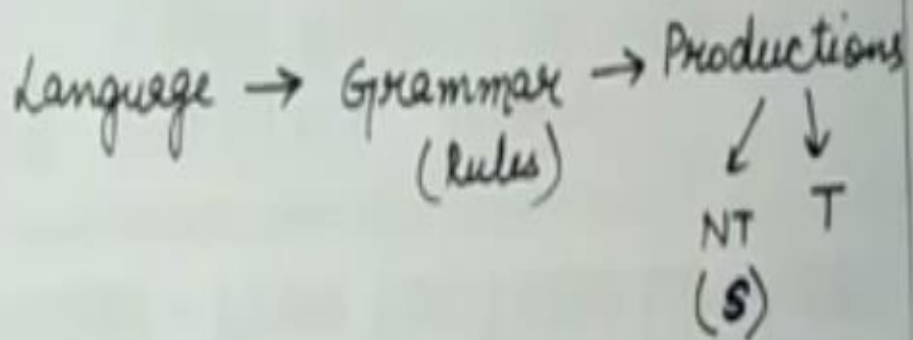 Language → Grammar → Productions
(Rules)
NT T
(S)